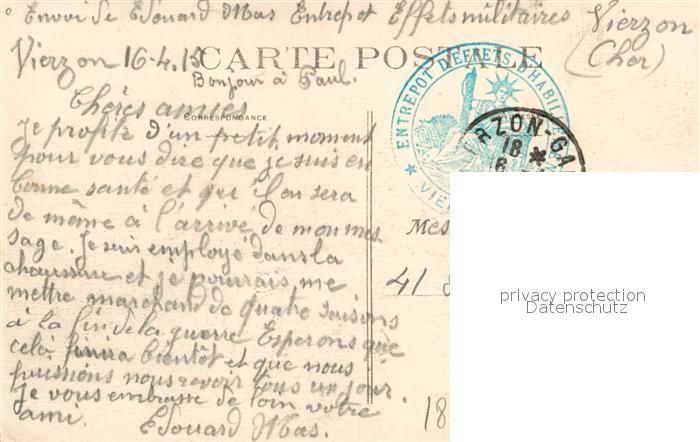 Envoi de Edouard Mas Entrepot Effets militaires Vierzon
(Cher)
Vierzon 16-4.15
CARTE POSTALE
Bonjour à Paul.
Chères amies
CORRESPONDANCE
Je profite d'un petit moment
pour vous dire que je suis en
bonne santé et qu'il en sera
de même à l'arrivé de mon mes
sage. Je suis employé dans la
chaussure et je pourrais me
mettre marchand de quatre saisons
à la fin de la guerre Esperons que
celà finira bientôt et que nous
puissions nous revoir tous un jour.
Je vous embrasse de loin votre
ami.
Edouard Mas.
ENTREPOT D'EFFETS D'HABILLE
VIE
RZON-GA
18
Mes
41
18
privacy protection
Datenschutz